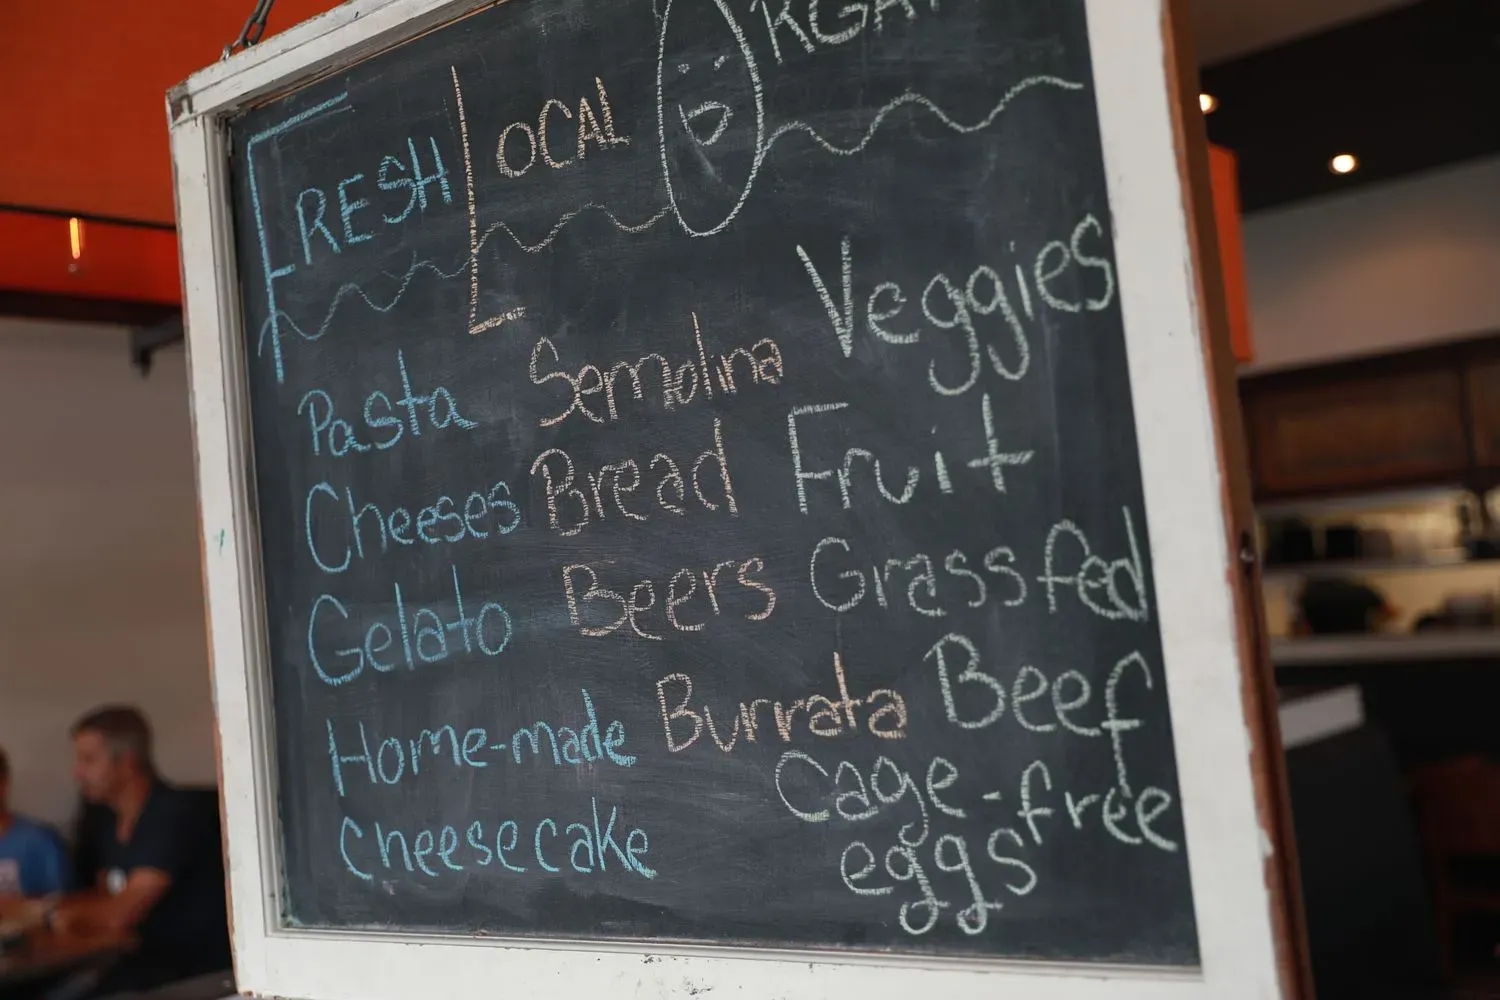 FRESH LOCAL ORGA
Pasta Semolina Veggies
Cheeses Bread Fruit
Gelato Beers Grassfed
Home-made Burrata Beef
cheesecake Cage-free
eggs